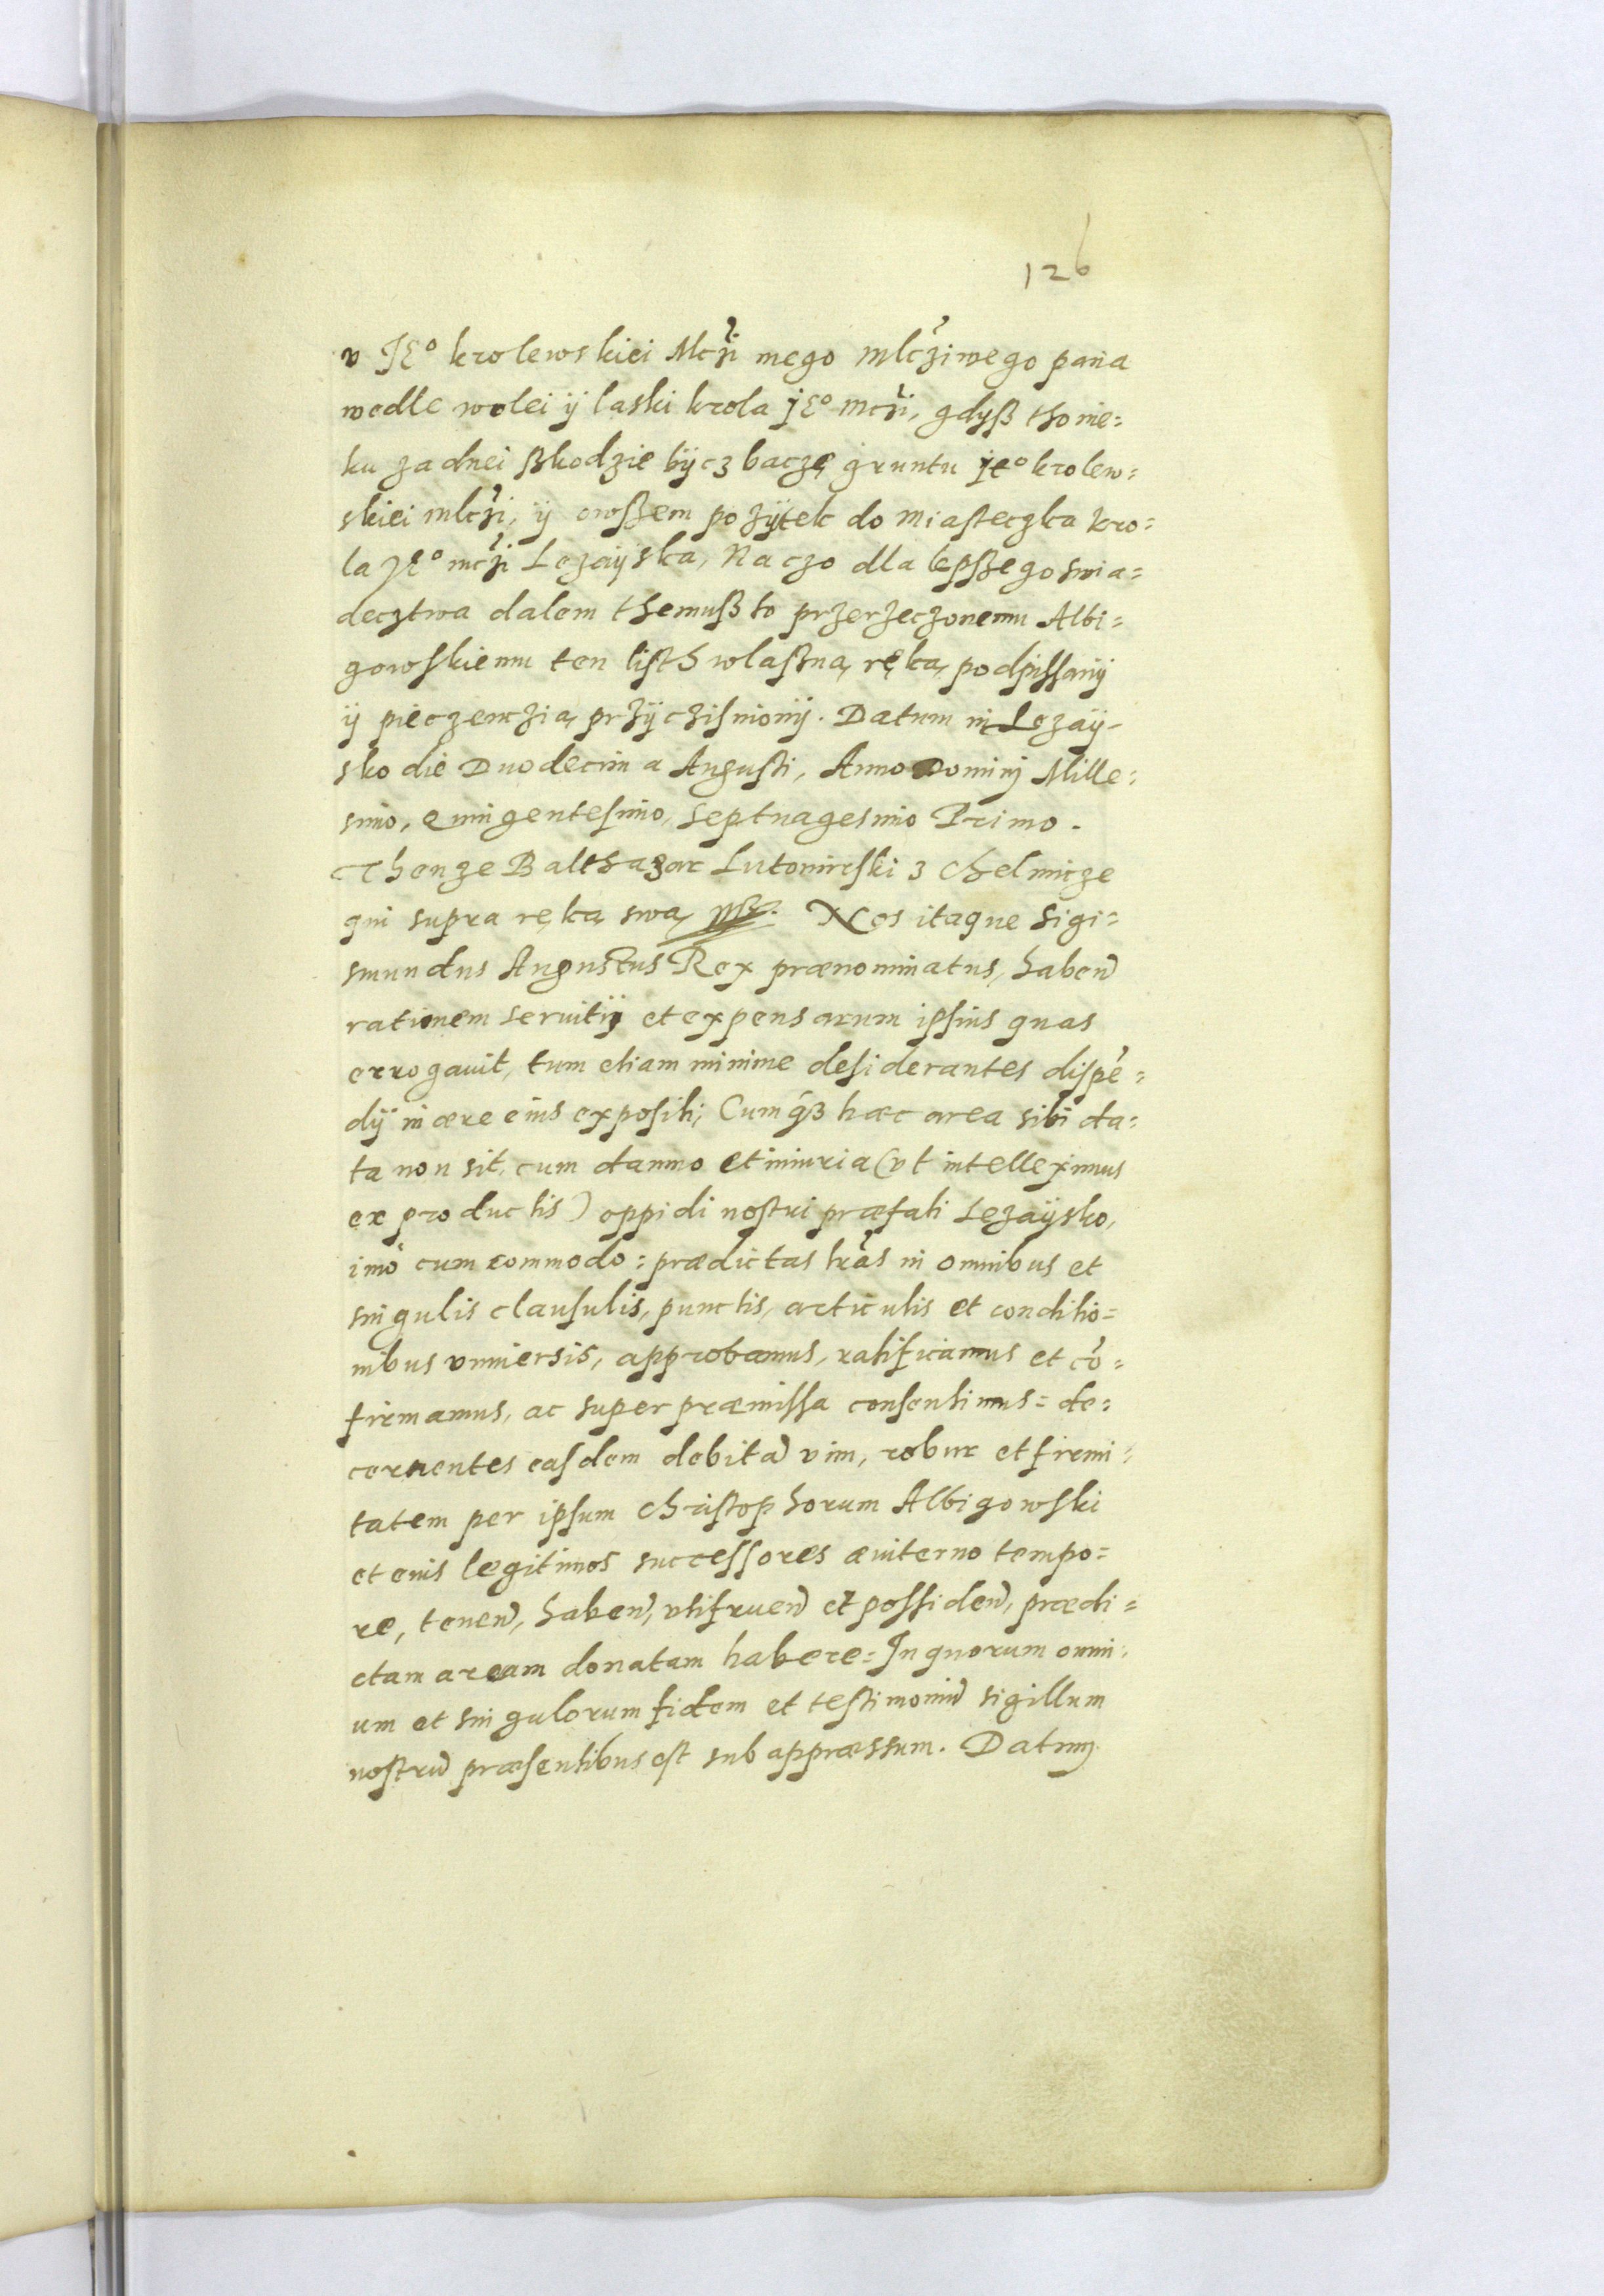 126
v JE° krolewskiei Mczi mego mlcziwego pana
wedle wolei ÿ laski krola jE° mczi, gdyß tho nie=
ku zadnei ßkodzie bÿcz baczę gruntu je° krolew=
skiei mlczi, ÿ owßem pozÿtek do miasteczka kro=
la JE° mczi Lezaÿska, Na czo dla lepßego swia=
decztwa dalem themußto przerzeczonemu Albi=
gowskiemu ten listh wlasną ręką podpissanÿ
ÿ pieczenczią przÿczisnionÿ. Datum in Lezaÿ-
sko die Duodecima Augusti, Anno Domini Mille=
simo, quingentesimo, septuagesimo Primo.
Thenze Balthazar Lutomirski z Chelmicze
qui supra ręką swą Nos itaque Sigi=
smundus Augustus Rex prænominatus, haben̄
rationem seruitÿ et expensarum ipsius quas
errogauit, tum etiam minime desiderantes dispē=
dÿ in ære eius expositi; Cumqȝ hæc area sibi da=
ta non sit, cum damno et iniuria (vt intelleximus
ex productis) oppidi nostri præfati Lezaÿsko,
imò cum commodo: prædictas lrās in omnibus et
singulis clausulis, punctis, articulis et conditio=
nibus vniuersis, approbamus, ratificamus et cō=
firmamus, ac super præmissa consentimus= de=
cernentes easdem debitā vim, robur et firmi=
tatem per ipsum Christophorum Albigowski
et eius legitimos successores æuiterno tempo=
re, tenen̄, haben̄, vtifruen̄ et possiden̄, prædi=
ctam aream donatam habere= In quorum omni=
um et singulorum fidem et testimoniū sigillum
nostrū præsentibus est subappræssum. Datum